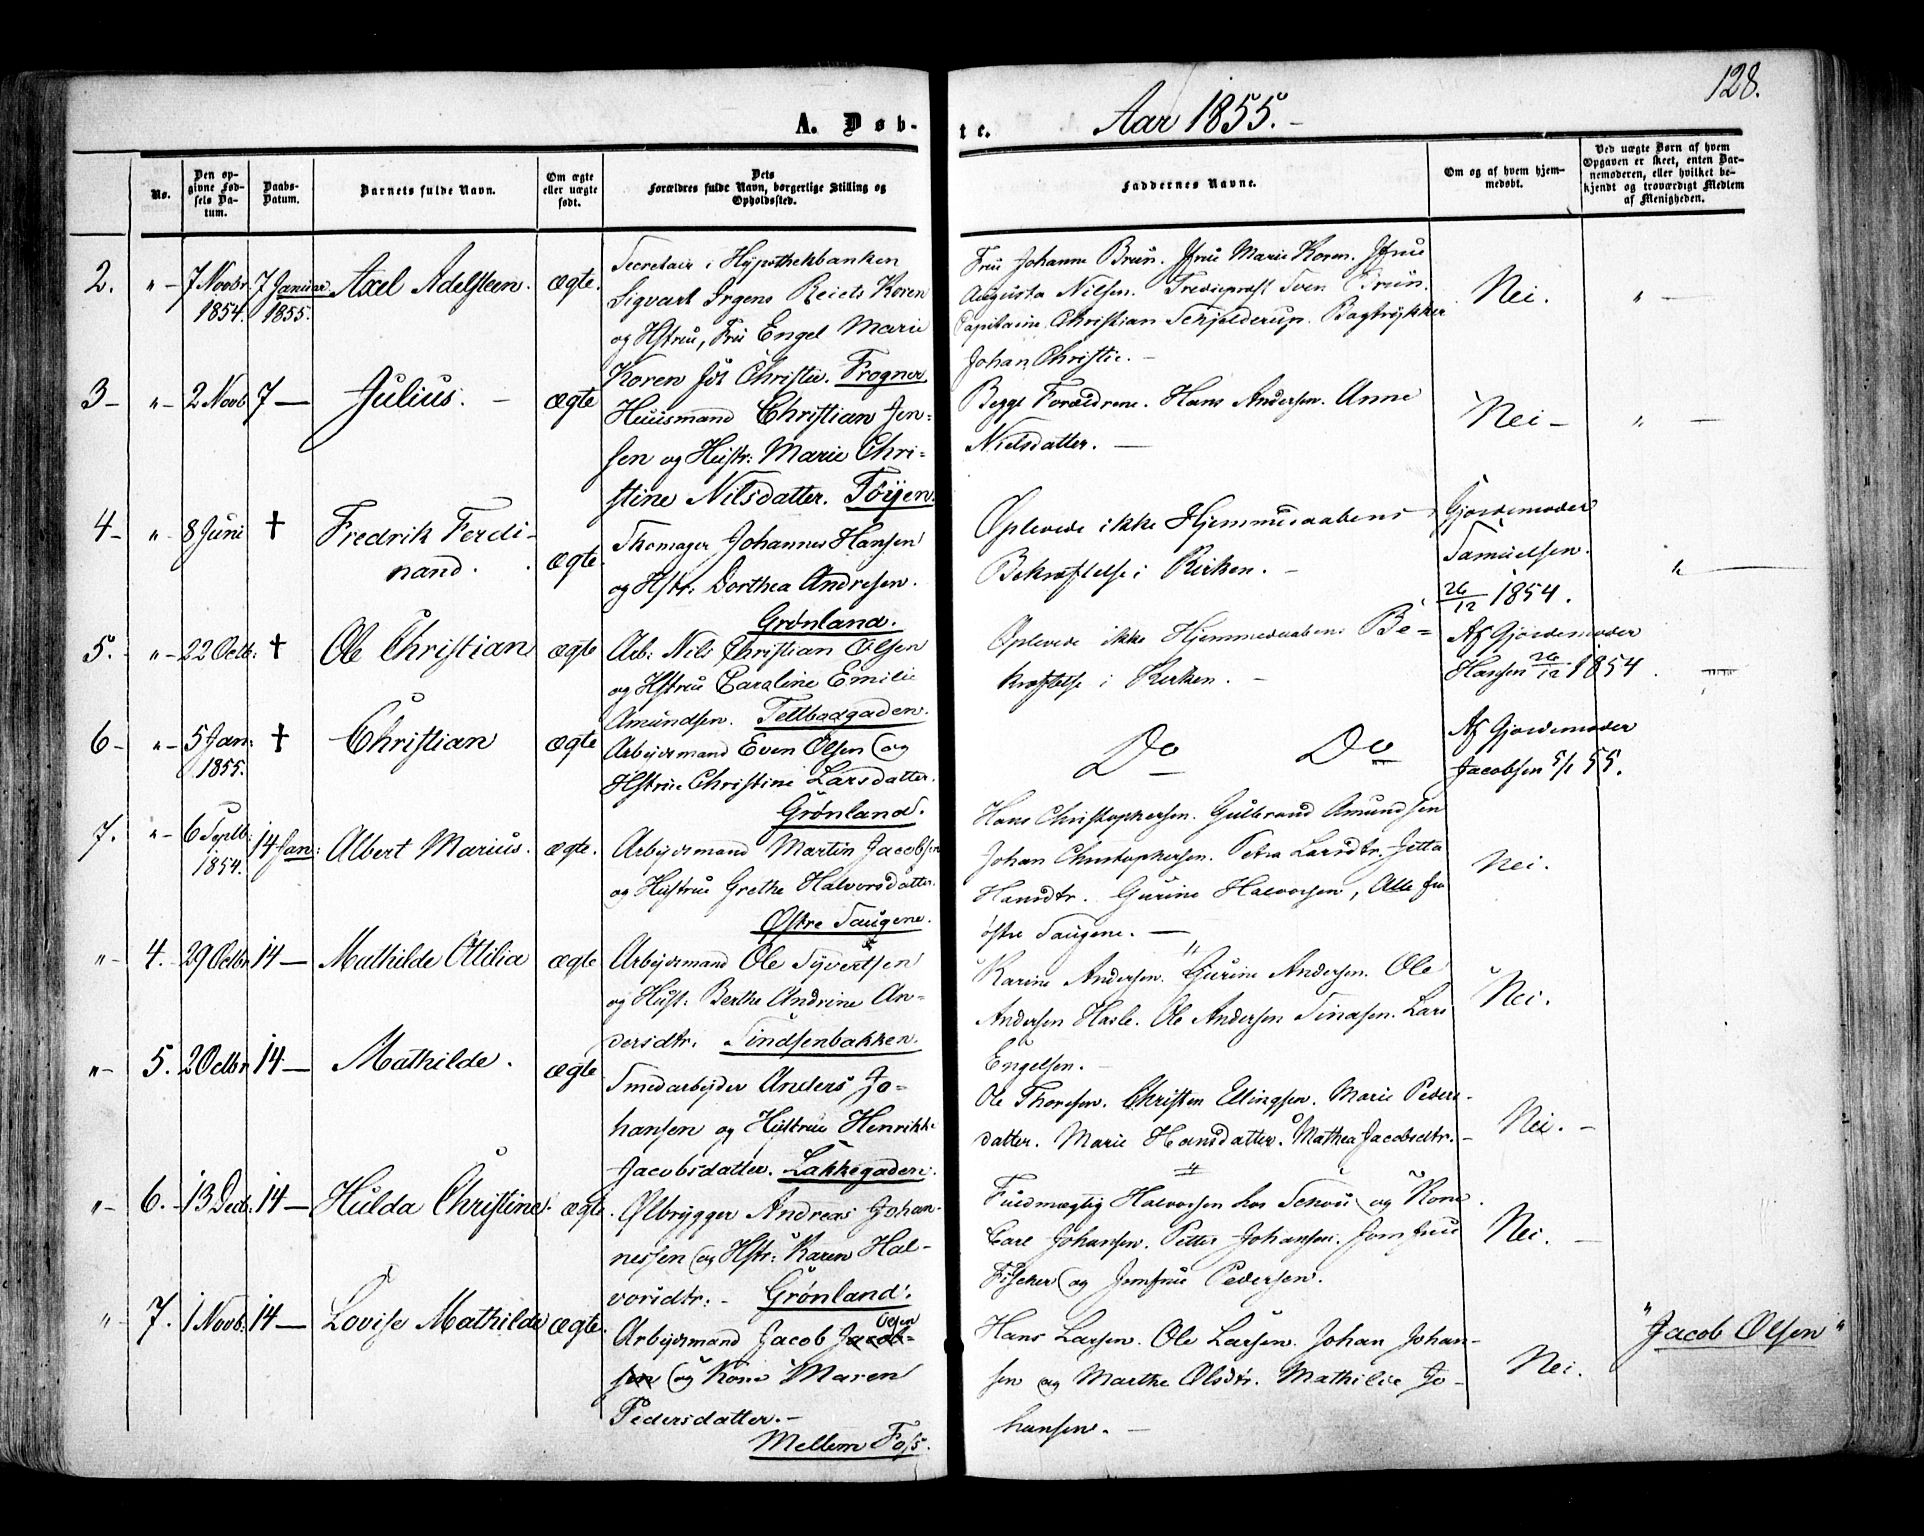 128.
A. Døb-
te. Aar 1855.-
No.
Den op-
givne Fød-
sels Da-
tum.
Daabs-
Datum.
Barnets fulde Navn.
Om ægte
eller uægte
født.
Dets
Forældres fulde Navn, borgerlige Stilling og
Opholdssted.
Faddernes Navne.
Om og af hvem hjem-
medøbt.
Ved uægte Børn af hvem
Opgaven er skeet, enten Bar-
nemoderen, eller hvilket be-
kjendt og troværdigt Medlem
af Menigheden.
2. " - 7 Novbr 1854. 7 Januar 1855. Axel Adelsteen. ægte.
Secretair i Hypothekbanken
Sigvart Irgens Reiets Koren
og Hstru, Frü Engel Marie
Koren fød Christie. Frogner
Frü Johanne Brün. Jfrü Marie Koren. Jfrü
Augusta Nilsen. Stedieprost Sven Brün.
Capitaine Christian Schjelderup. Bogtrykker
Johan Christie. -
Nei. " -
3- " - 2 Novb 7 - Julius. - ægte
Huusmand Christian Jen-
sen og Hustr: Marie Chri-
stine Nilsdatter. Töyen.
Begge Forældrene. Hans Andersen. Anne
Nielsdatter. -
Nei - " -
4- " - 8 Juni † Fredrik Ferdi-
nand. ægte.
Skomager Johannes Hansen
og Hstr: Dorthea Andresen.
Grønland.
Oplevede ikke Hjemmedaabens
Bekræftelse i Kirken. -
Gjordemoder
Samuelsen.
26/12 1854. "
5. " - 22 Octb: † Ole Christian ægte
Arb: Nils Christian Olsen
og Hstrü Caroline Emilie
Amündsen. Teltbadgaden.
Oplevede ikke Hjemmedaabens Be-
kræftelse i Kirken. -
Af Gjordemoder
Hansen 26/12 1854.
6- " - 5 Jan: 1855. † Christian ægte
Arbejdsmand Even Olsen og
Hstrue Christine Larsdatter.
Grønland.
Do Do
Af Gjordemoder
Jacobsen 5/1 55.
7. " - 6 Septb: 1854. 14 Jan: Albert Marius. ægte.
Arbejdsmand Martin Jacobsen
og Hustrue Grethe Halvorsdatter.
Østre Saugene.
Hans Christophersen. Gulbrand Amundsen
Johan Christophersen. Petra Larsdtr. Jetta
Hansdtr. Gurine Halvorsen, Alle fra
østre Saugene. -
Nei.
" - 4. 29 Octbr 14 - Mathilde Ottilia ægte
Arbejdsmand Ole Syvertsen
og Hust: Berthe Andrine An-
dersdtr. Sindsenbakken.
Karine Andersen. Gurine Andersen. Ole
Andersen Hasle. Ole Andersen Sinasen. Lars
Engelsen. -
Nei.
" - 5. 2 Octbr 14 - Mathilde. ægte
Smedarbejder Anders Jo-
hansen og Hustrue Henrikke
Jacobsdatter. Lakkegaden.
Ole Thoresen. Christen Ellingsen. Marie Peders-
datter. Marie Hansdatter. Mathea Jacobsdtr. -
Nei. -
" - 6. 13 Decb: 14 - Hulda Christine. ægte.
Ølbrygger Andreas Johan-
nessen og Hstr: Karen Hal-
vorsdtr: - Grønland.
Fuldmægtig Halvorsen hos Schou og Kone.
Carl Johansen. Petter Johansen. Jomfrue
Fischer og Jomfrue Pedersen.
Nei. -
" - 7. 1 Novb: 14 - Lovise Mathilde ægte.
Arbejdsmand Jacob Jacob-
sen Olsen og Kone Maren
Pedersdatter. -
Mellem Foss.
Hans Larsen. Ole Larsen. Johan Johan-
sen og Marthe Olsdtr. Mathilde Jo-
hansen. -
Nei. "Jacob Olsen"